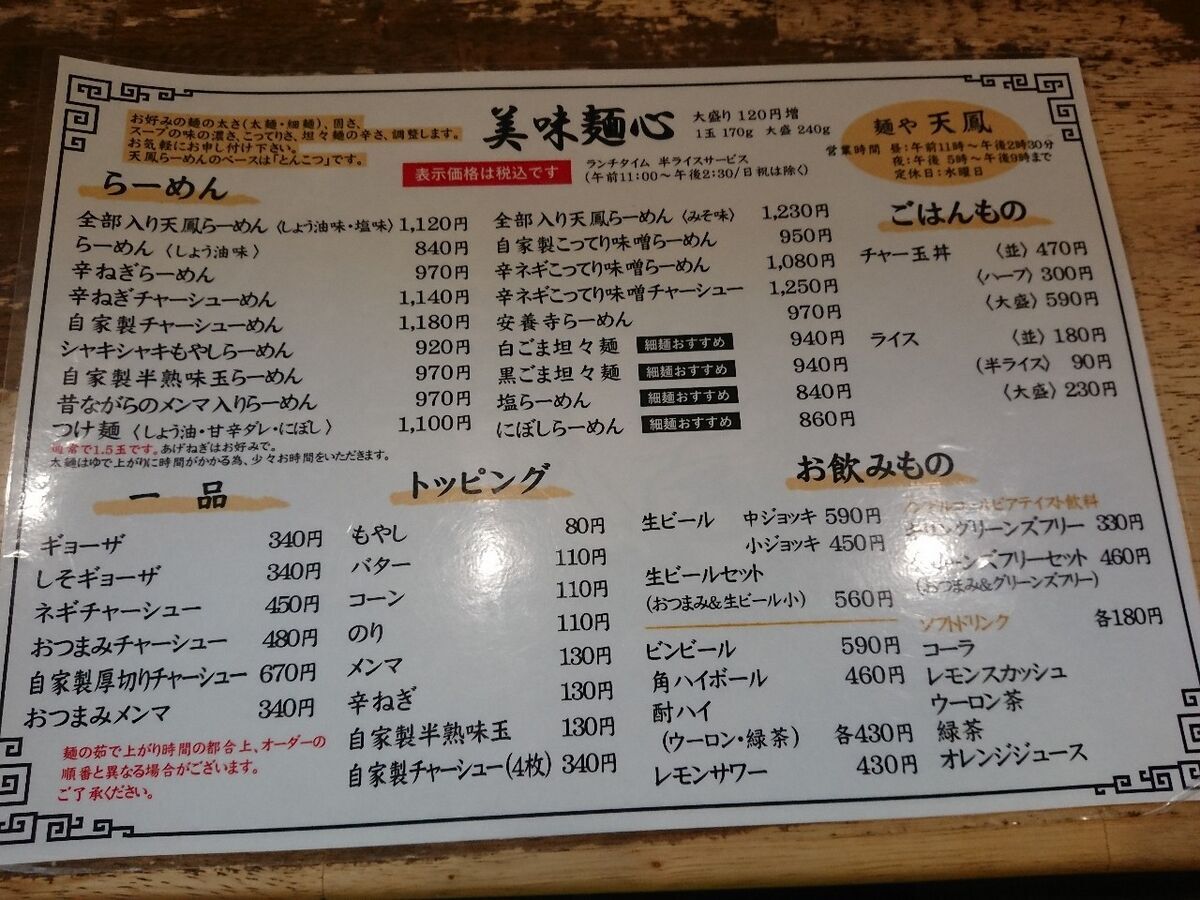 お好みの麺の太さ(太麺・細麺)、固さ、
スープの味の濃さ、こってりさ、坦々麺の辛さ、調整します。
お気軽にお申し付け下さい。
天鳳らーめんのベースは「とんこつ」です。
美味麺心
大盛り 120円増
1玉 170g 大盛 240g
表示価格は税込です
ランチタイム 半ライスサービス
(午前11:00〜午後2:30/日祝は除く)
麺や 天鳳
営業時間 昼:午前11時〜午後2時30分
夜:午後 5時〜午後9時まで
定休日:水曜日
らーめん
全部入り天鳳らーめん〈しょう油味・塩味〉 1,120円
らーめん〈しょう油味〉 840円
辛ねぎらーめん 970円
辛ねぎチャーシューめん 1,140円
自家製チャーシューめん 1,180円
シャキシャキもやしらーめん 920円
自家製半熟味玉らーめん 970円
昔ながらのメンマ入りらーめん 970円
つけ麺〈しょう油・甘辛ダレ・にぼし〉 1,100円
通常で1.5玉です。あげねぎはお好みで。
太麺はゆで上がりに時間がかかる為、少々お時間をいただきます。
全部入り天鳳らーめん〈みそ味〉 1,230円
自家製こってり味噌らーめん 950円
辛ネギこってり味噌らーめん 1,080円
辛ネギこってり味噌チャーシュー 1,250円
安養寺らーめん 970円
白ごま坦々麺 細麺おすすめ 940円
黒ごま坦々麺 細麺おすすめ 940円
塩らーめん 細麺おすすめ 840円
にぼしらーめん 細麺おすすめ 860円
ごはんもの
チャー玉丼 〈並〉 470円
〈ハーフ〉 300円
〈大盛〉 590円
ライス 〈並〉 180円
〈半ライス〉 90円
〈大盛〉 230円
一品
ギョーザ 340円
しそギョーザ 340円
ネギチャーシュー 450円
おつまみチャーシュー 480円
自家製厚切りチャーシュー 670円
おつまみメンマ 340円
麺の茹で上がり時間の都合上、オーダーの
順番と異なる場合がございます。
ご了承ください。
トッピング
もやし 80円
バター 110円
コーン 110円
のり 110円
メンマ 130円
辛ねぎ 130円
自家製半熟味玉 130円
自家製チャーシュー(4枚) 340円
お飲みもの
生ビール 中ジョッキ 590円
小ジョッキ 450円
生ビールセット
(おつまみ&生ビール小) 560円
ビンビール 590円
角ハイボール 460円
酎ハイ
(ウーロン・緑茶) 各430円
レモンサワー 430円
ノンアルコールビアテイスト飲料
キリングリーンズフリー 330円
グリーンズフリーセット 460円
(おつまみ&グリーンズフリー)
ソフトドリンク 各180円
コーラ
レモンスカッシュ
ウーロン茶
緑茶
オレンジジュース